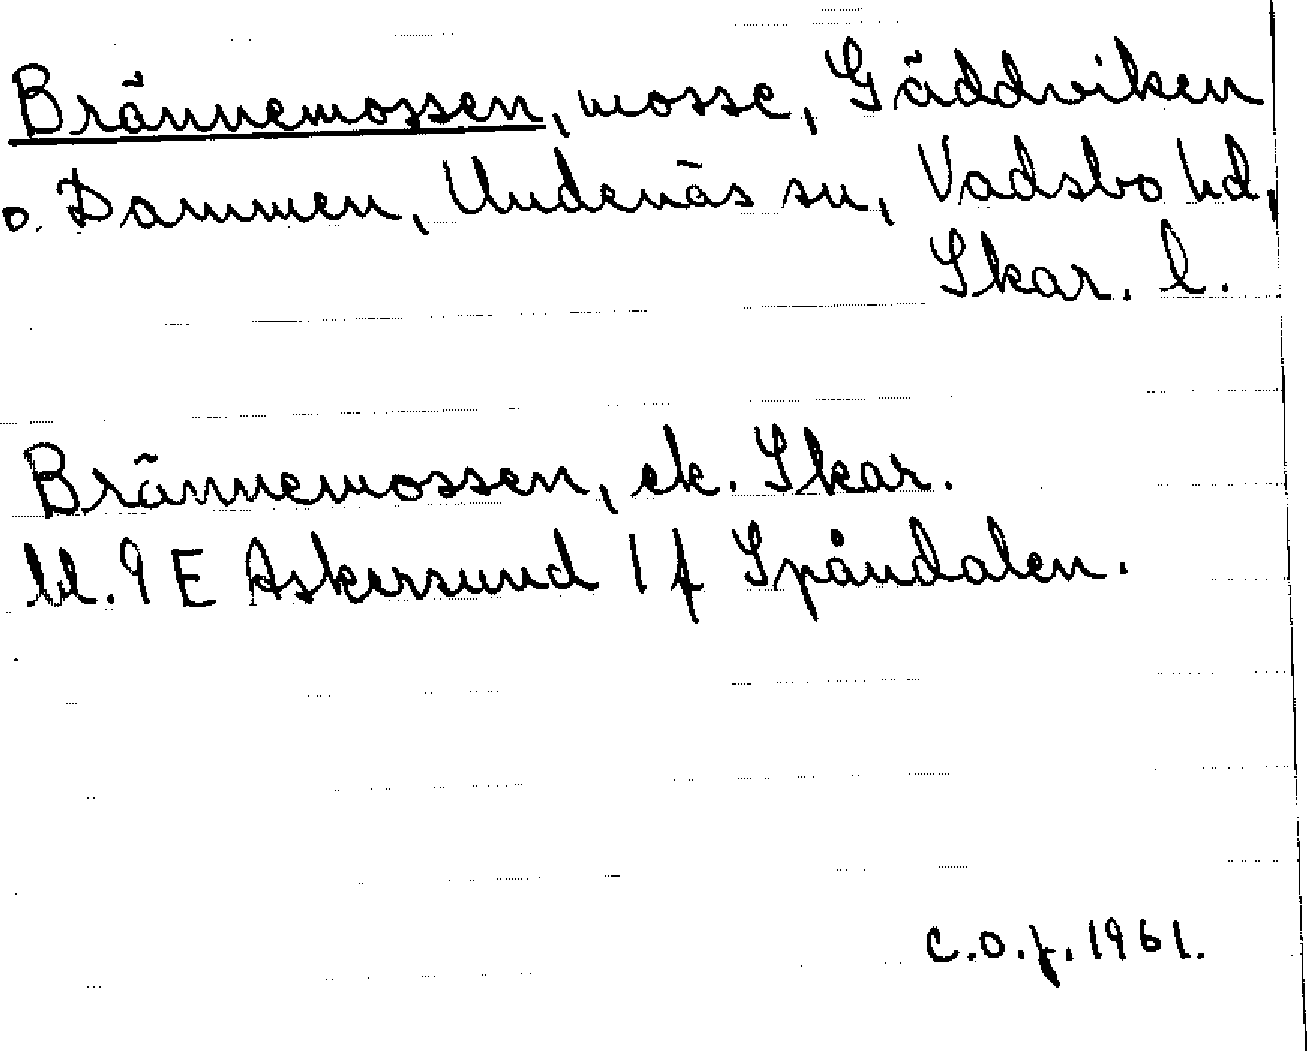 Brännemossen, mosse, Gäddviken
o. Dammen, Undenäs sn, Vadsbo hd,
Skar. l.
Brännemossen, ek. Skar.
bl. 9 E Askersund 1 f Spåndalen.
C.O.f. 1961.